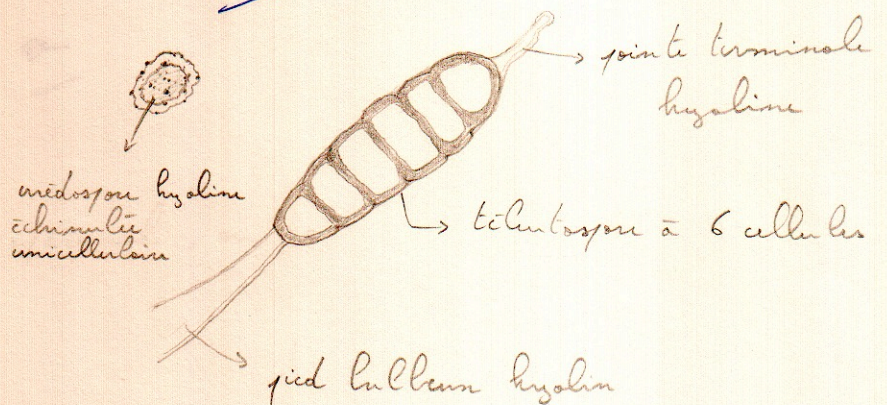 pointe terminale
hyaline
urédospore hyaline
échinulée
unicellulaire
téleutospore à 6 cellules
pied bulbeux hyalin